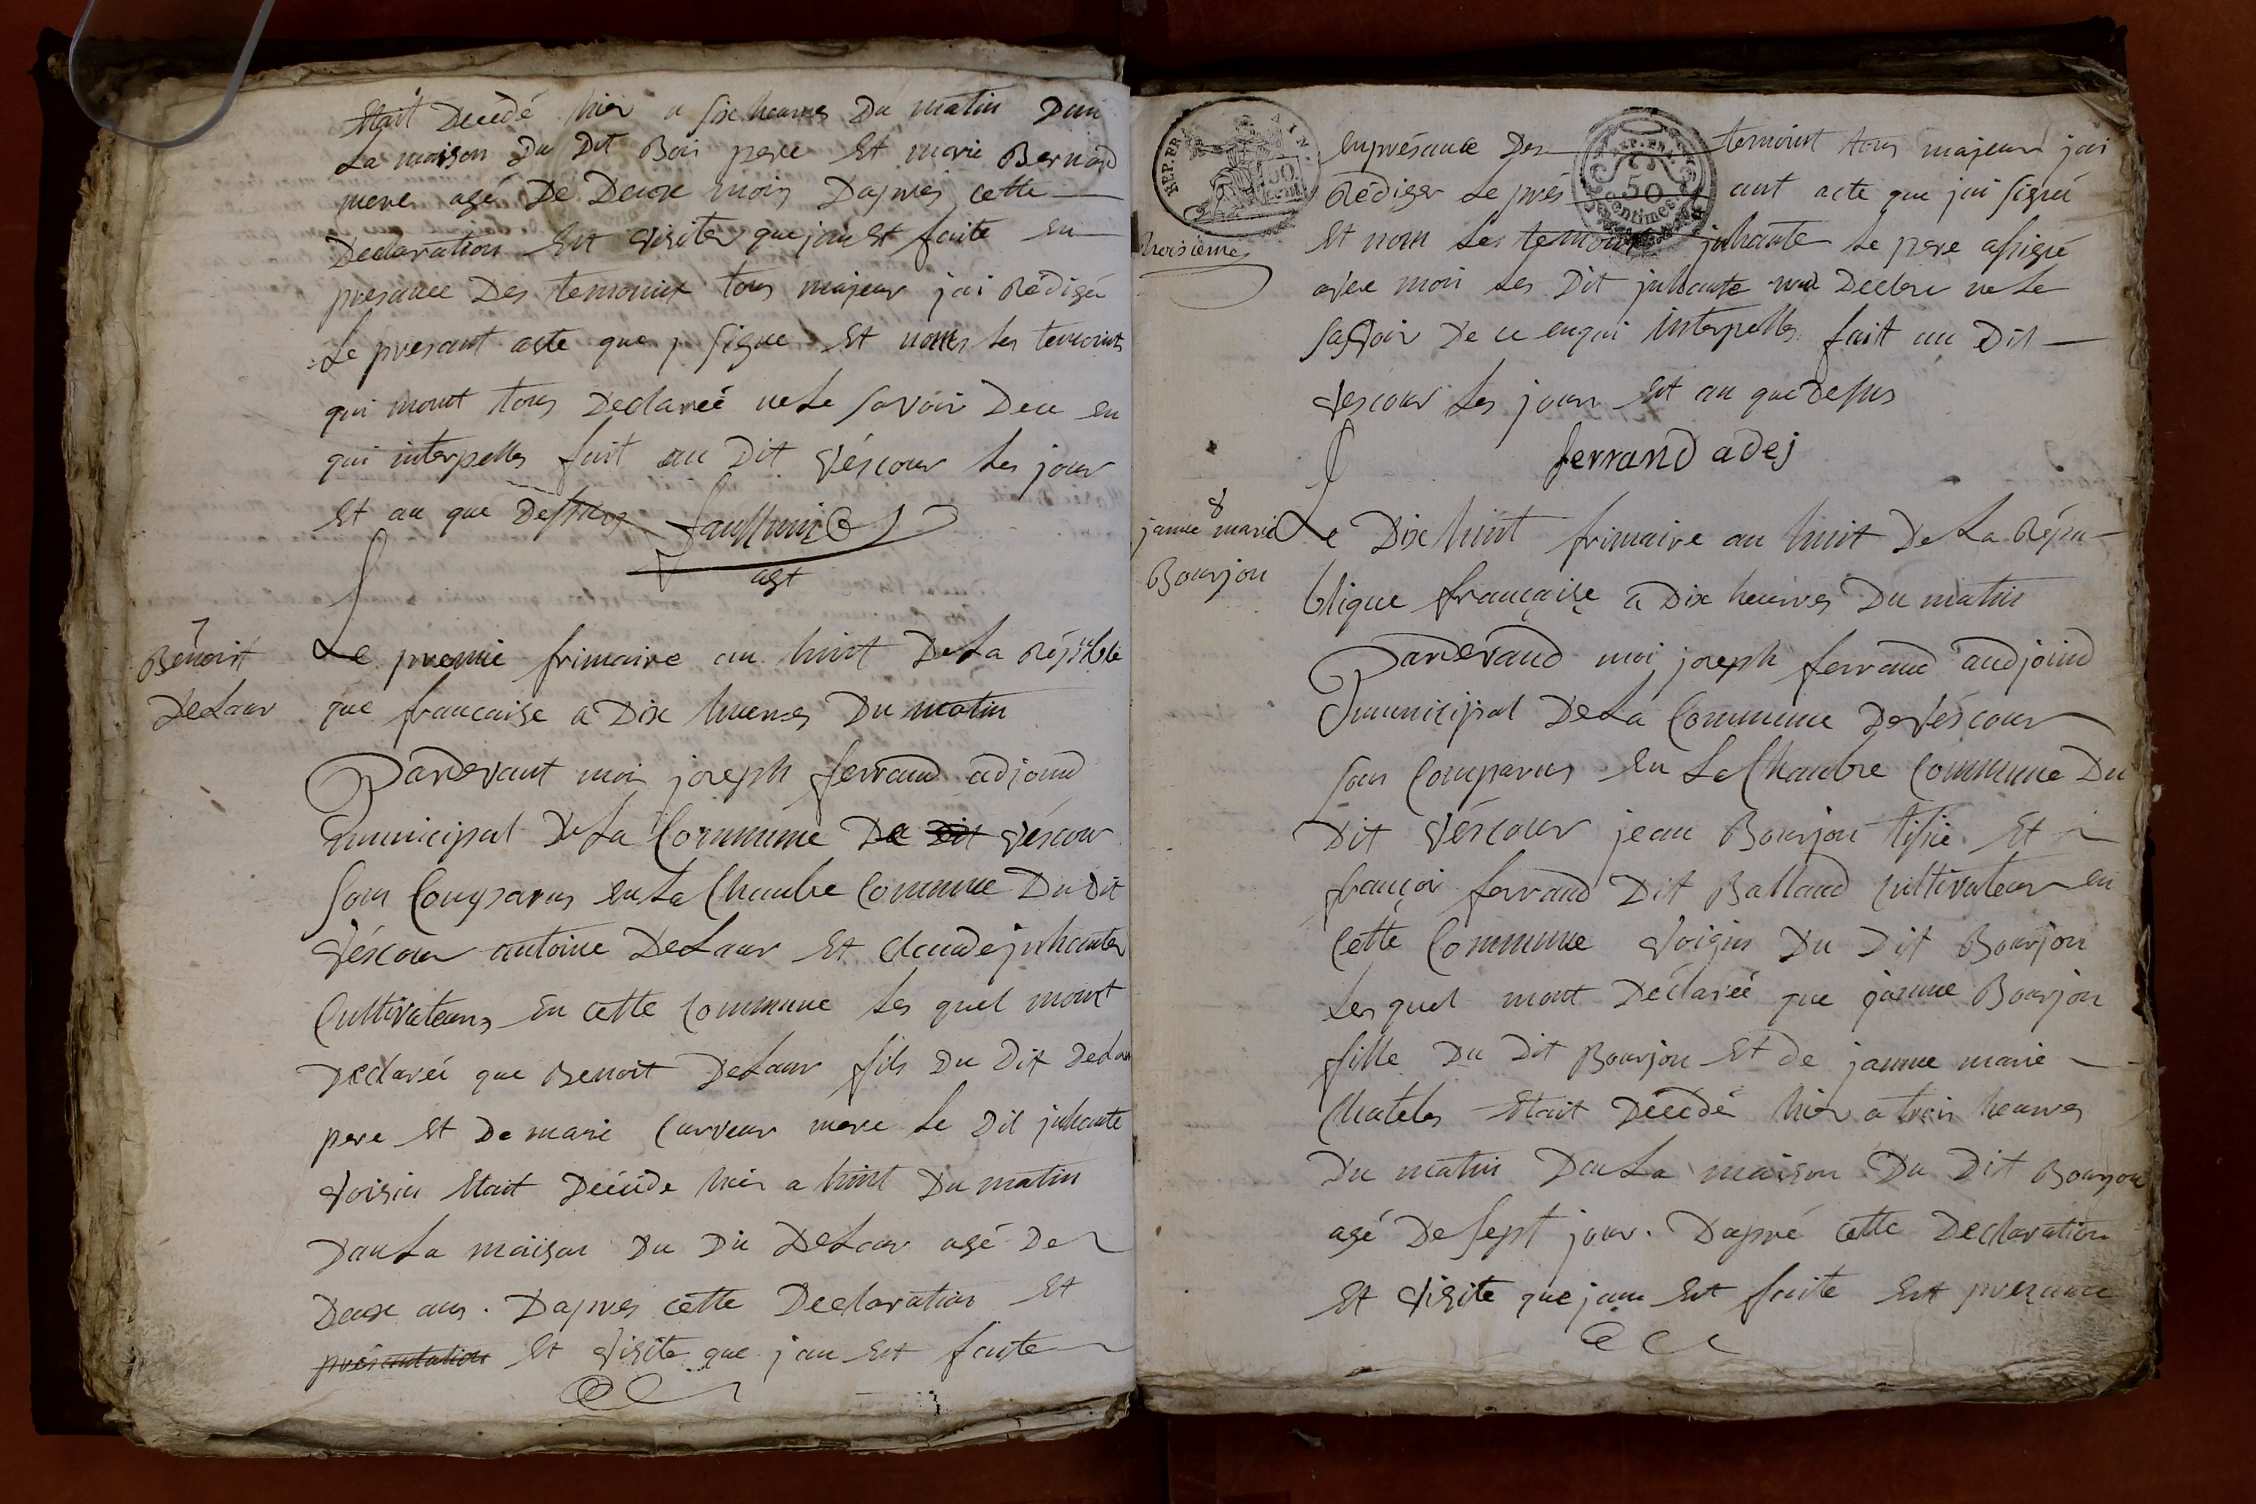 Etait Decédé hier a six heures Du matin Dan
La maison Du Dit Bois pere Et marie Bernard
mere agé De Deux mois Dapres cette
Declaration Est visiter que jan Et faite En
presance Des temoint tous majeur jai Rédigé
Le presant acte que j signe Et nom les temoints
qui mont tous Declareé ne Le savoir De ce en
qui interpelles fait au Dit véscour Les jour
Et an que Dessus
agt
7
Benoist
DeLaur
Le premie frimaire an huit De La Républi
que francaise a Dix heures Du matin
Pardevant moi joseph ferrand adjoind
municipal De La Commune De Dit véscour
son Comparus en La Chambre Commune Du Dit
véscour antoine DeLaur Et claude juhante
Cultivateurs En cette Commune Les quel mont
Declareé que Benoit DeLaur fils Du Dit DeLau
pere Et De marie Carveur mere Le Dit juhante
voisin Etait Décéde hier a huit Du matin
Dan La maison Du Dit DeLaur agé De
Deux ans. Dapres cette Declaration Et
présentation Et visite que jan Est faite
REP. FRA
50
troisieme
REP. FRA.
50
centimes
En présance Des temoint tous majeur jai
Rédiger Le prés ant acte que jai signé
Et nom Les temoint juhante Le pere a signé
avec moi Les Dit juhante Declare ne Le
savoir De ce enqui interpelles fait au Dit
vescour Les jour Et an que Desus
ferrand adej
8
janne marie
Bourjon
Le Dix huit frimaire an huit De La Répu
blique française a Dix heures Du matin
Pardevand moi joseph ferrand andjoind
municipal De La Commune De véscour
son Comparus En La Chambre Commune Du
Dit véscour jean Bourjon tisié Et
françoi ferrand Dit Balland Cultivateur en
Cette Commune voigin Du Dit Bourjon
Les quel mont Déclareé que janne Bourjon
fille Du Dit Bourjon Et de janne marie
Chateles Etait Décedé hier a trois heures
Du matin Dan La maison Du Dit Bourjon
agé De sept jour. Dapré cette Declaration
Et visite que jan Est faite Ent presance